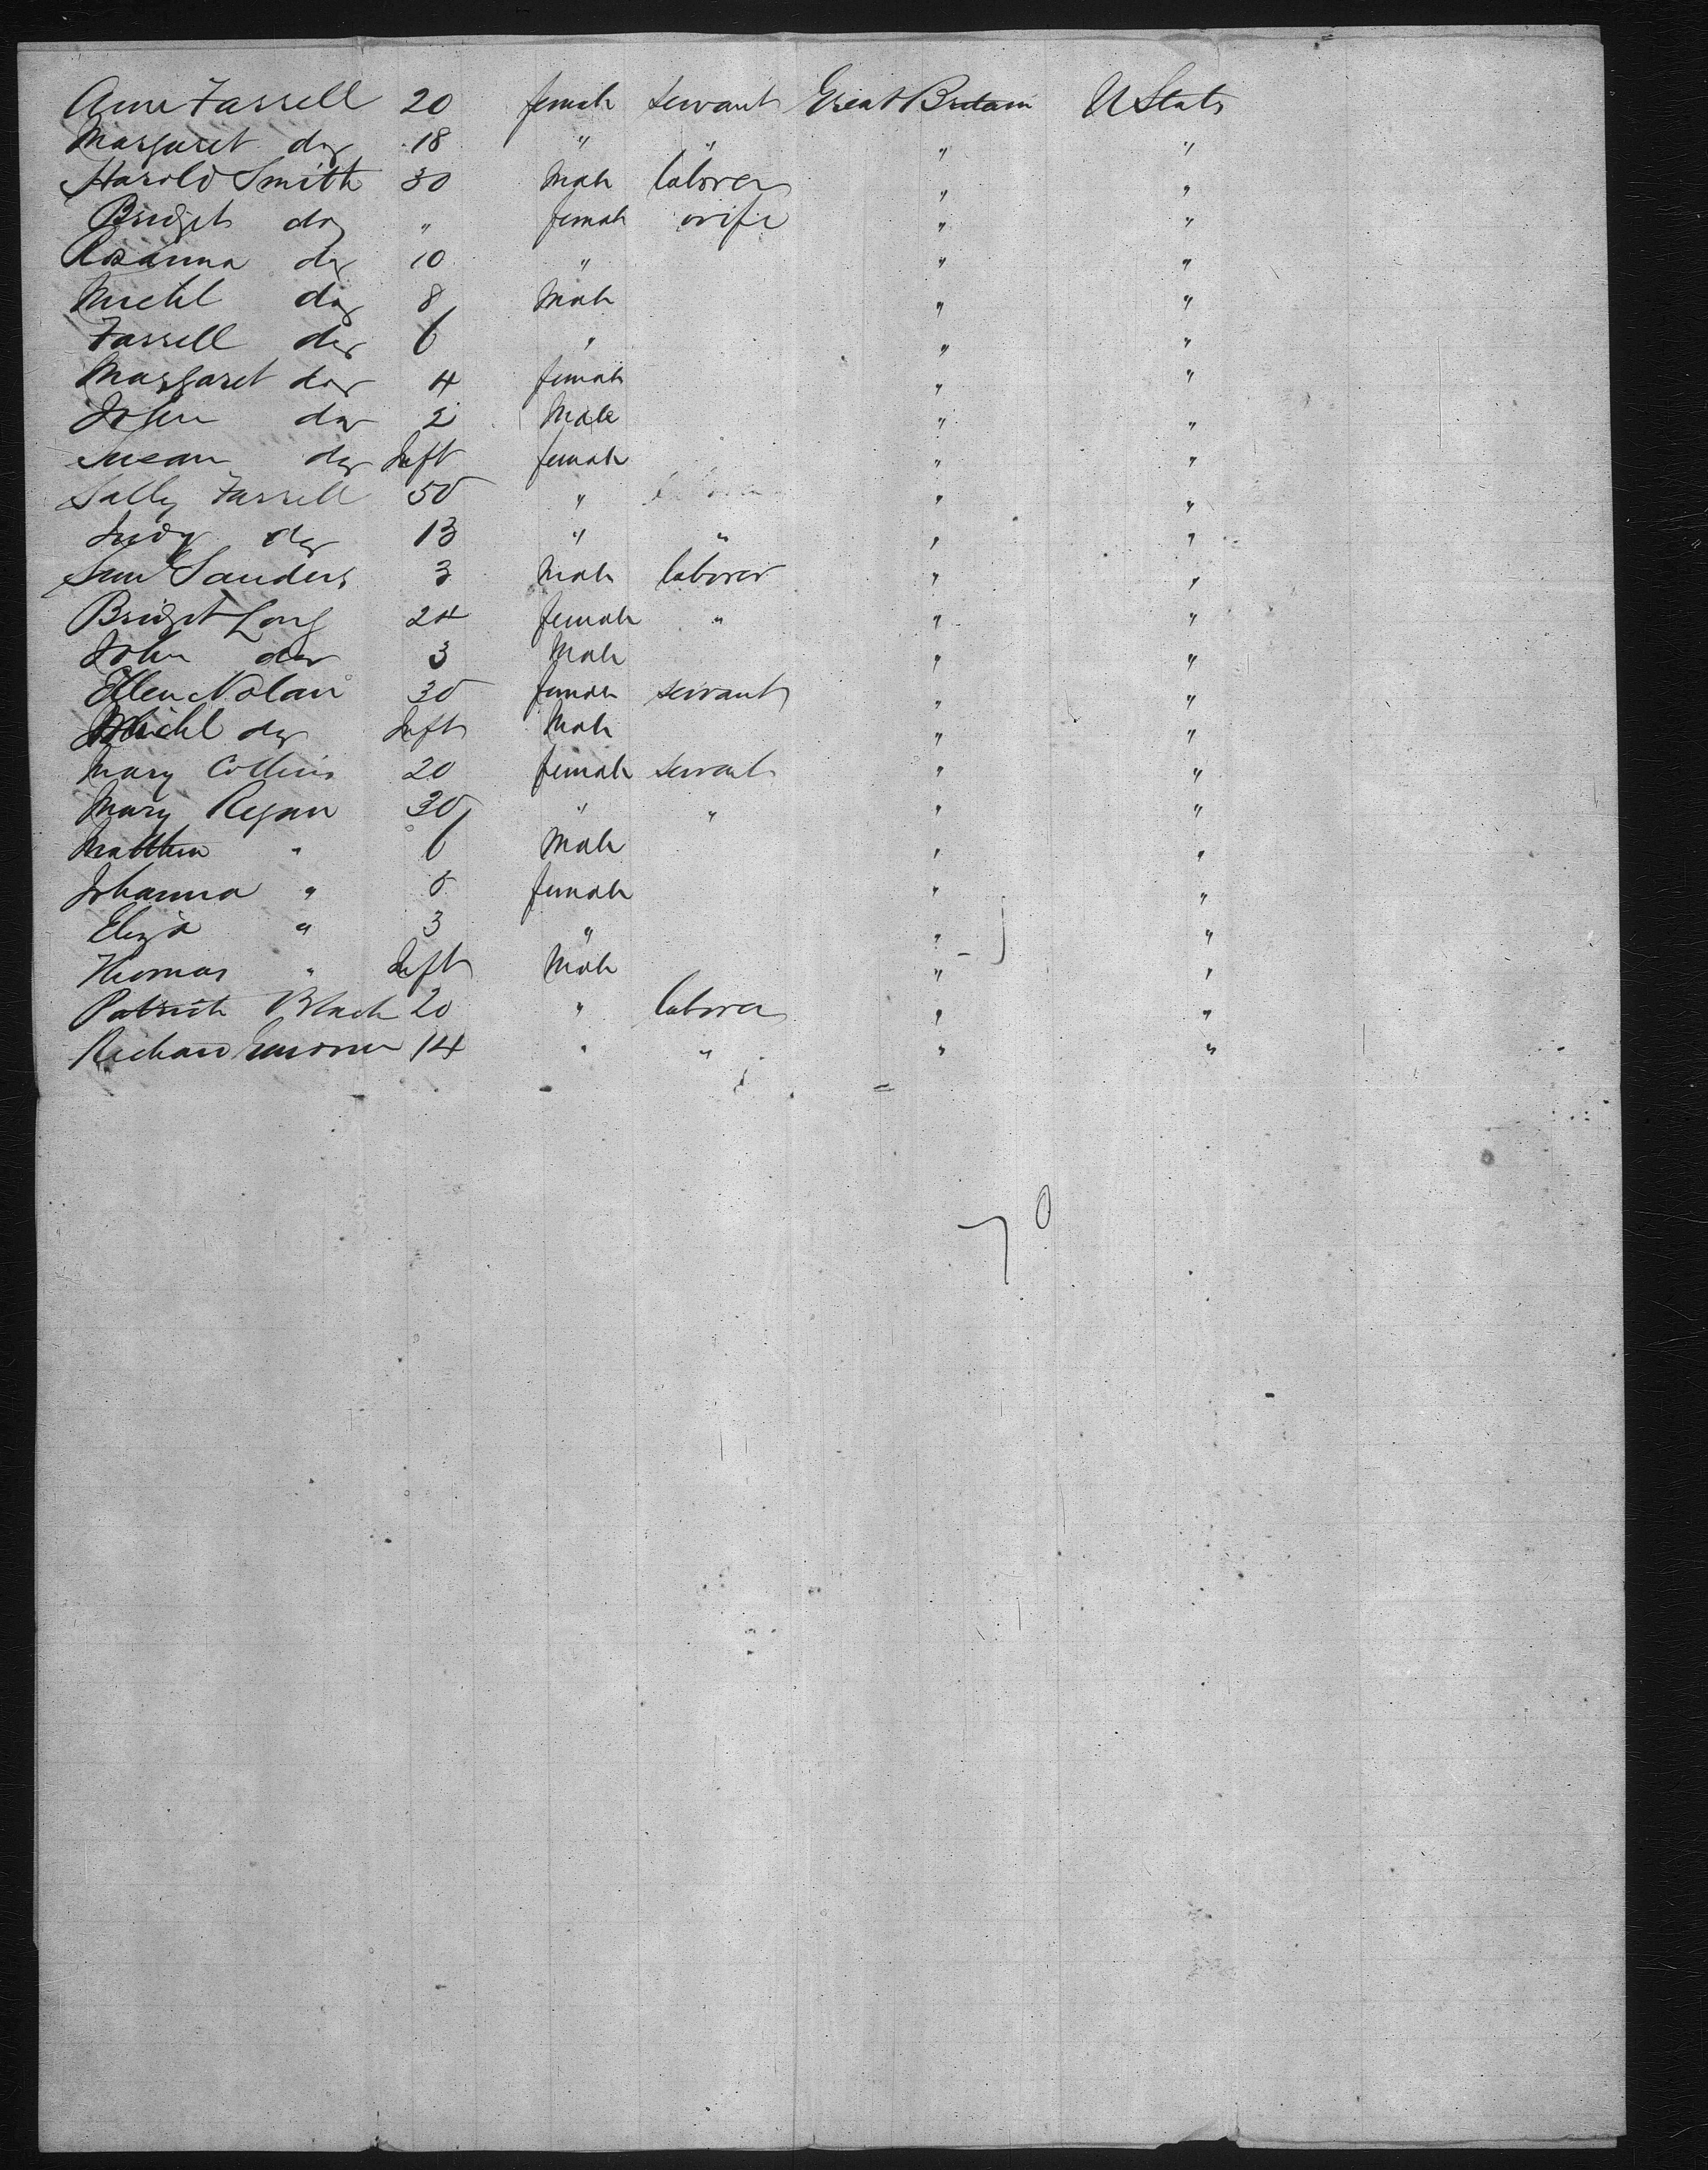 Ann Farrell 20 female servant Great Britain U States
Margaret do 18 " " " "
Harold Smith 30 Male laborer " "
Bridget do " female wife " "
Rosanna do 10 " " "
Michl do 8 Male " "
Farrell do 6 " " "
Margaret do 4 female " "
John do 2 Male " "
Susan do Inft female " "
Sally Farrell 50 " " "
Judy do 13 " " " "
Sanders 3 Male laborer " "
Bridget Long 24 female " " "
John do 3 Male " "
Ellen Nolan 30 female servant " "
Michl do Inft Male " "
Mary Collins 20 female servant " "
Mary Regan 30 " " " "
Matthew " 6 Male " "
Johanna " 5 female " "
Eliza " 3 " " "
Thomas " Inft Male " "
Patrick Black 20 " laborer " "
Richard 14 " " " "
70